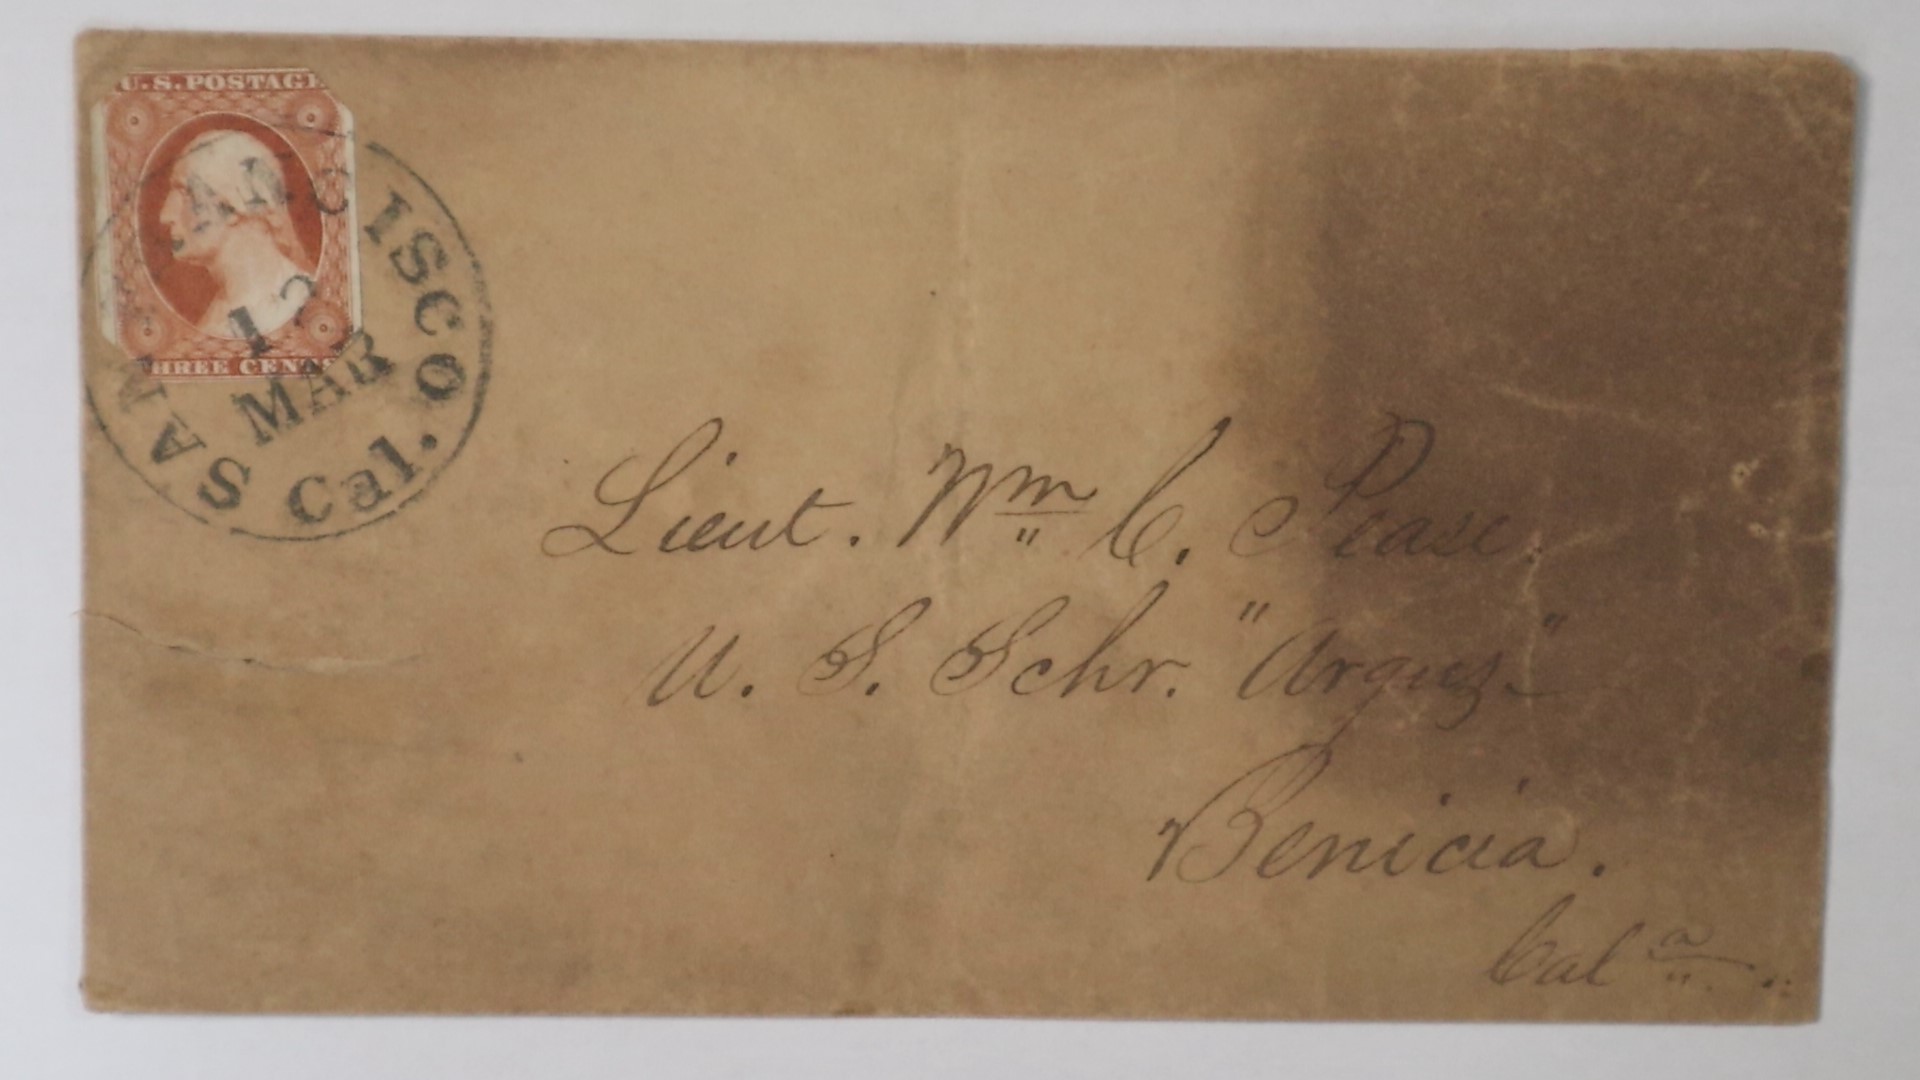 U.S. POSTAGE
THREE CENTS
SAN FRANCISCO
12
MAR
Cal.
Lieut. Wm C. Pease.
U. S. Schr. "Argus"
Benicia.
Cala